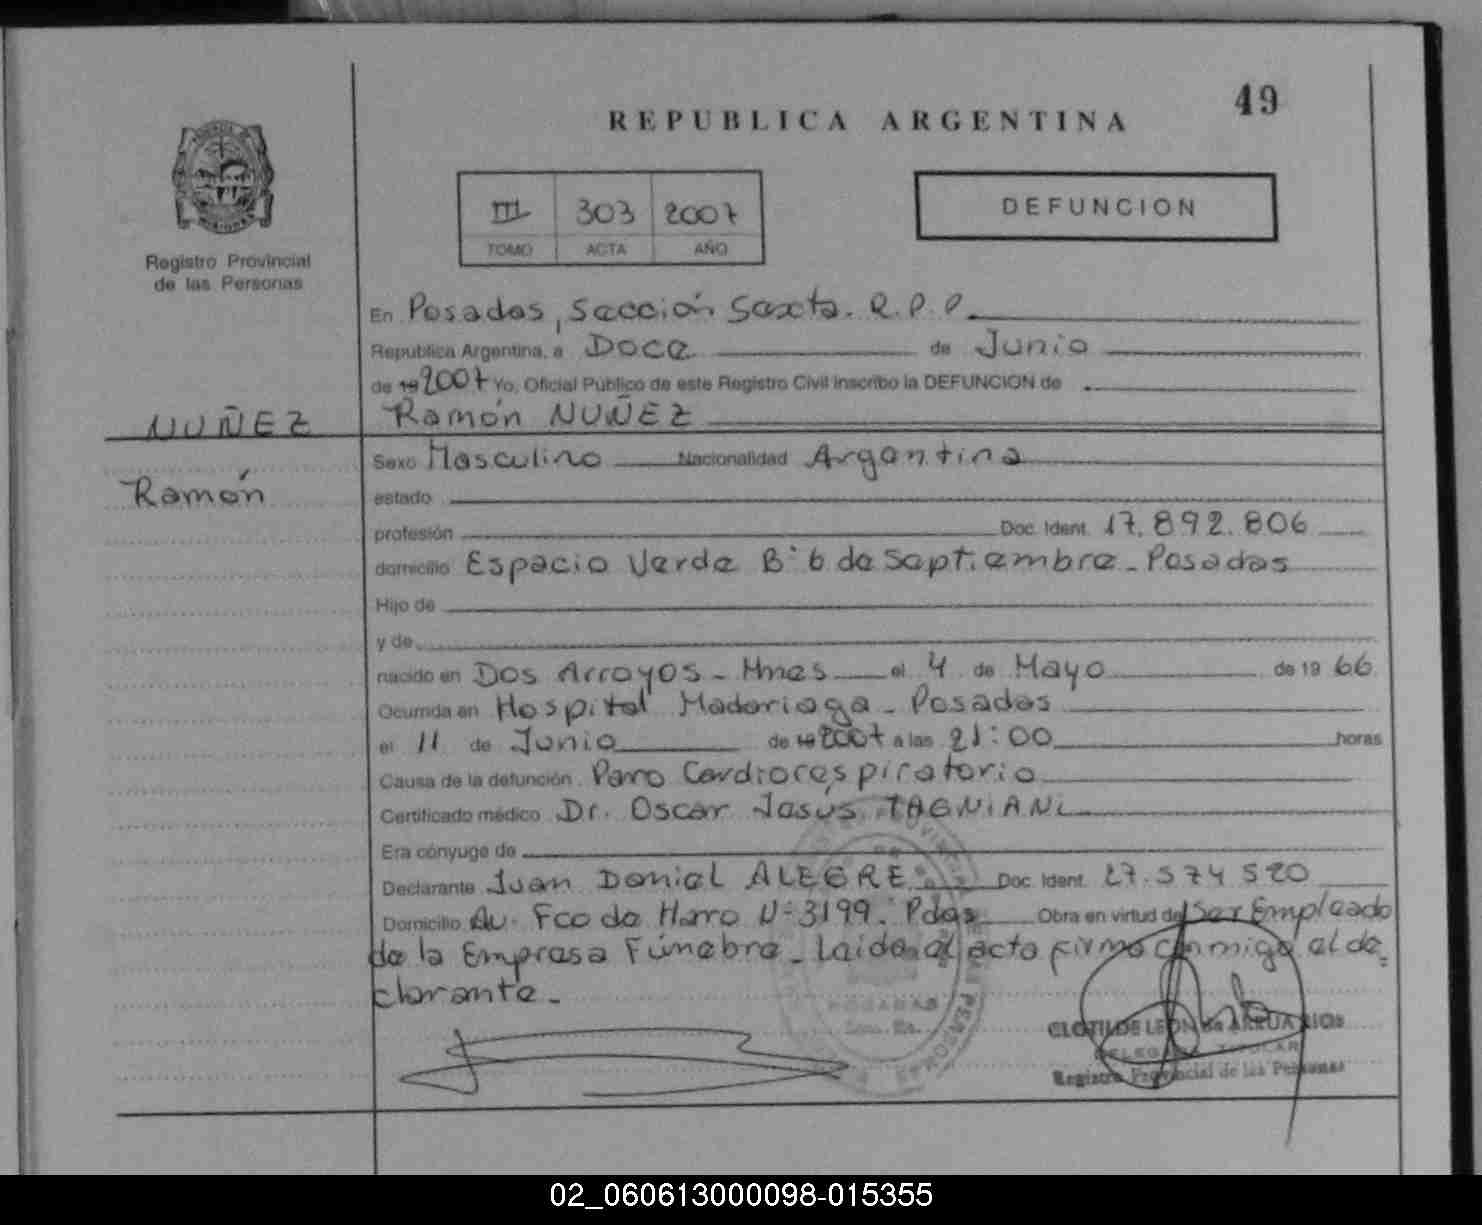 49
REPUBLICA ARGENTINA
III 303 2007
TOMO ACTA AÑO
DEFUNCION
Registro Provincial
de las Personas
En Posadas, Sección Sexta. R.P.P.
Republica Argentina, a Doce de Junio
de 19 2007 Yo, Oficial Público de este Registro Civil inscribo la DEFUNCION de
NUÑEZ Ramón NUÑEZ
Sexo Masculino Nacionalidad Argentina
Ramón estado
profesión Doc. Ident. 17.892.806
domicilio Espacio Verde B° 6 de Septiembre - Posadas
Hijo de
y de
nacido en Dos Arroyos - Mnes el 4 de Mayo de 19 66
Ocurrida en Hospital Madariaga - Posadas
el 11 de Junio de 19 2007 a las 21:00 horas
Causa de la defunción Paro Cardiorespiratorio
Certificado médico Dr. Oscar Jesús TAGNIANI
Era cónyuge de
Declarante Juan Daniel ALEGRE Doc. Ident. 27.574520
Domicilio Av. Fco de Haro N° 3199. Pdas Obra en virtud de Ser Empleado
de la Empresa Fúnebre - Leida el acta firma conmigo el de=
clarante.-
POSADAS
CLOTILDE LEON de ARRUA RIOS
Registro Provincial de las Personas
02_060613000098-015355